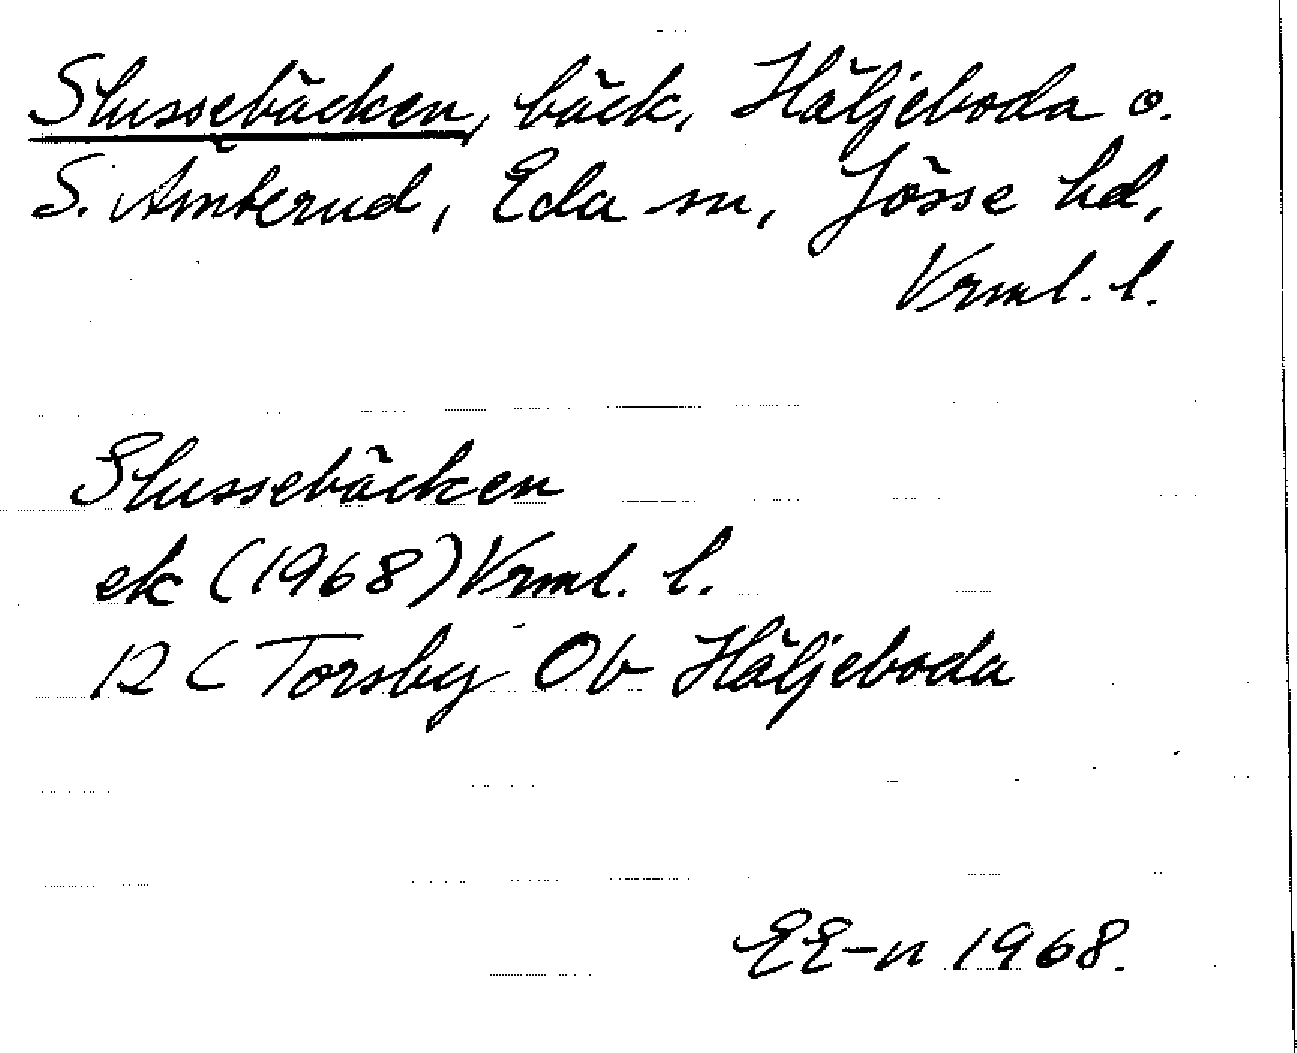 Slussebäcken, bäck, Häljeboda o.
S. Åmterud, Eda sn, Jösse hd,
Vrml. l.
Slussebäcken
ek (1968) Vrml. l.
12 C Torsby 0b Häljeboda
EE-n 1968.